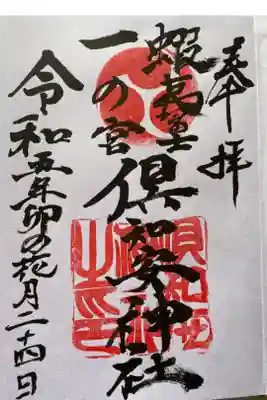 奉拝
蝦夷國
一の宮
倶知安神社
令和五年卯の花月二十四日
倶知安
神社
之印